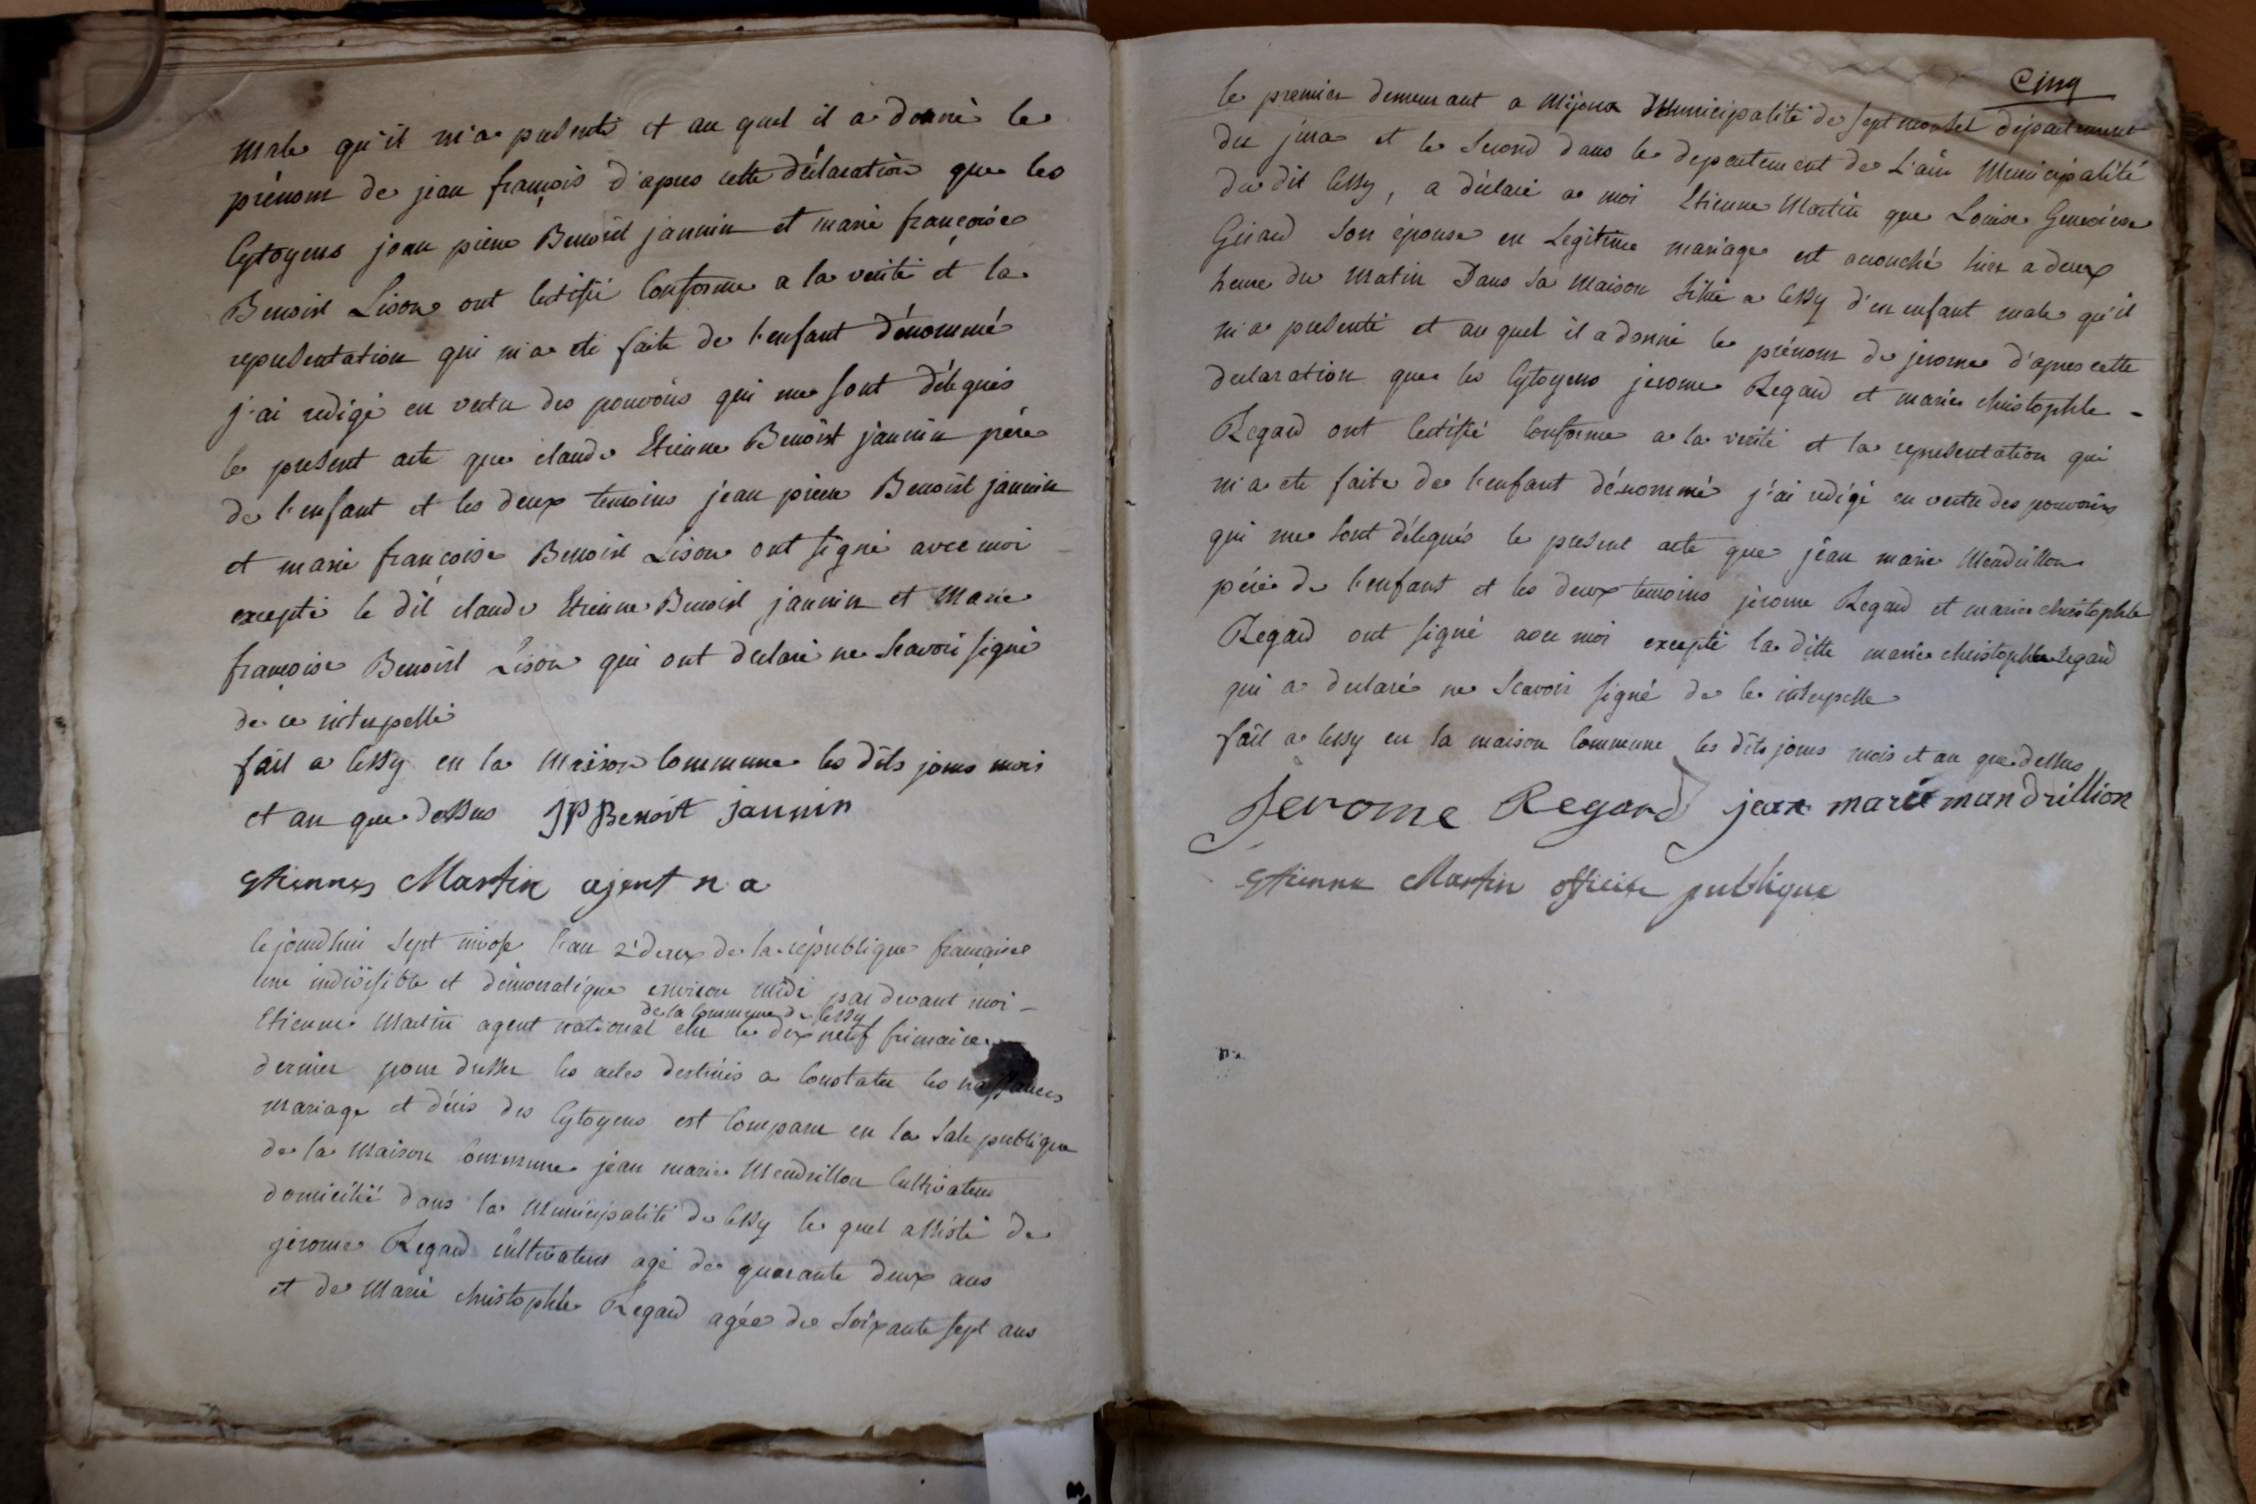 male qu'il m'a presenté et au quel il a donné le
prénom de jean françois d'apres cette déclaration que les
Cytoyens jean pierre Benoist jannin et marie françoise
Benoist Lison ont certifié Conforme a la verité et la
representation qui m'a eté faite de l'enfant dénommé
j'ai redigé en vertu des pouvoirs qui me sont délegués
le present acte que claude Etienne Benoist jannin père
de l'enfant et les deux temoins jean pierre Benoist jannin
et marie françoise Benoist Lison ont signé avec moi
excepté le dit claude Etienne Benoist jannin et Marie
françoise Benoist Lison qui ont declaré ne scavoir signé
de ce interpellé
fait a lessy en la Maison Commune les dits jours mois
et an que dessus JP Benoit jannin
Etiennes Martin ajent n a
Cejourdhui sept nivose l'an 2 deux de la république française
une indivisible et démocratique environ midi par devant moi -
de la Commune de lessy
Etienne Martin agent national elu le dix neuf frimaire
dernier pour dresser les actes destinés a Constater les naissances
mariage et décés des Cytoyens est Comparu en la sale publique
de la Maison Commune jean marie Mendrillon Cultivateur
domicilié dans la Municipalité de lessy le quel assisté de
jerome Regard cultivateur agé de quarante deux ans
et de Marie christophle Regard agée de soixante sept ans
Cinq
le premier demeurant a Mijoux Municipalité de septmonsel département
du jura et le second dans le departement de L'ain Municipalité
du dit lessy, a déclaré a moi Etienne Martin que Louise Genevieve
Girard son épouse en Legitime mariage est acouché hier a deux
heure du matin Dans sa Maison sitüé a lessy d'en enfant male qu'il
m'a presenté et au quel il a donné le prénom de jerome d'apres cette
declaration que les Cytoyens jerome Regard et marie christophle -
Regard ont certifié Conforme a la verité et la representation qui
m'a eté faite de l'enfant dénommé j'ai redigé en vertu des pouvoirs
qui me sont délegués le present acte que jean marie Mendrillon
père de l'enfant et les deux temoins jerome Regard et marie christophle
Regard ont signé avec moi excepté la ditte marie christophle regard
qui a declaré ne scavoir signé de ce interpelle
fait a lessy en la maison Commune les dits jours mois et an que dessus
Jerome Regard jean marie mandrillion
Etienne Martin officier publique